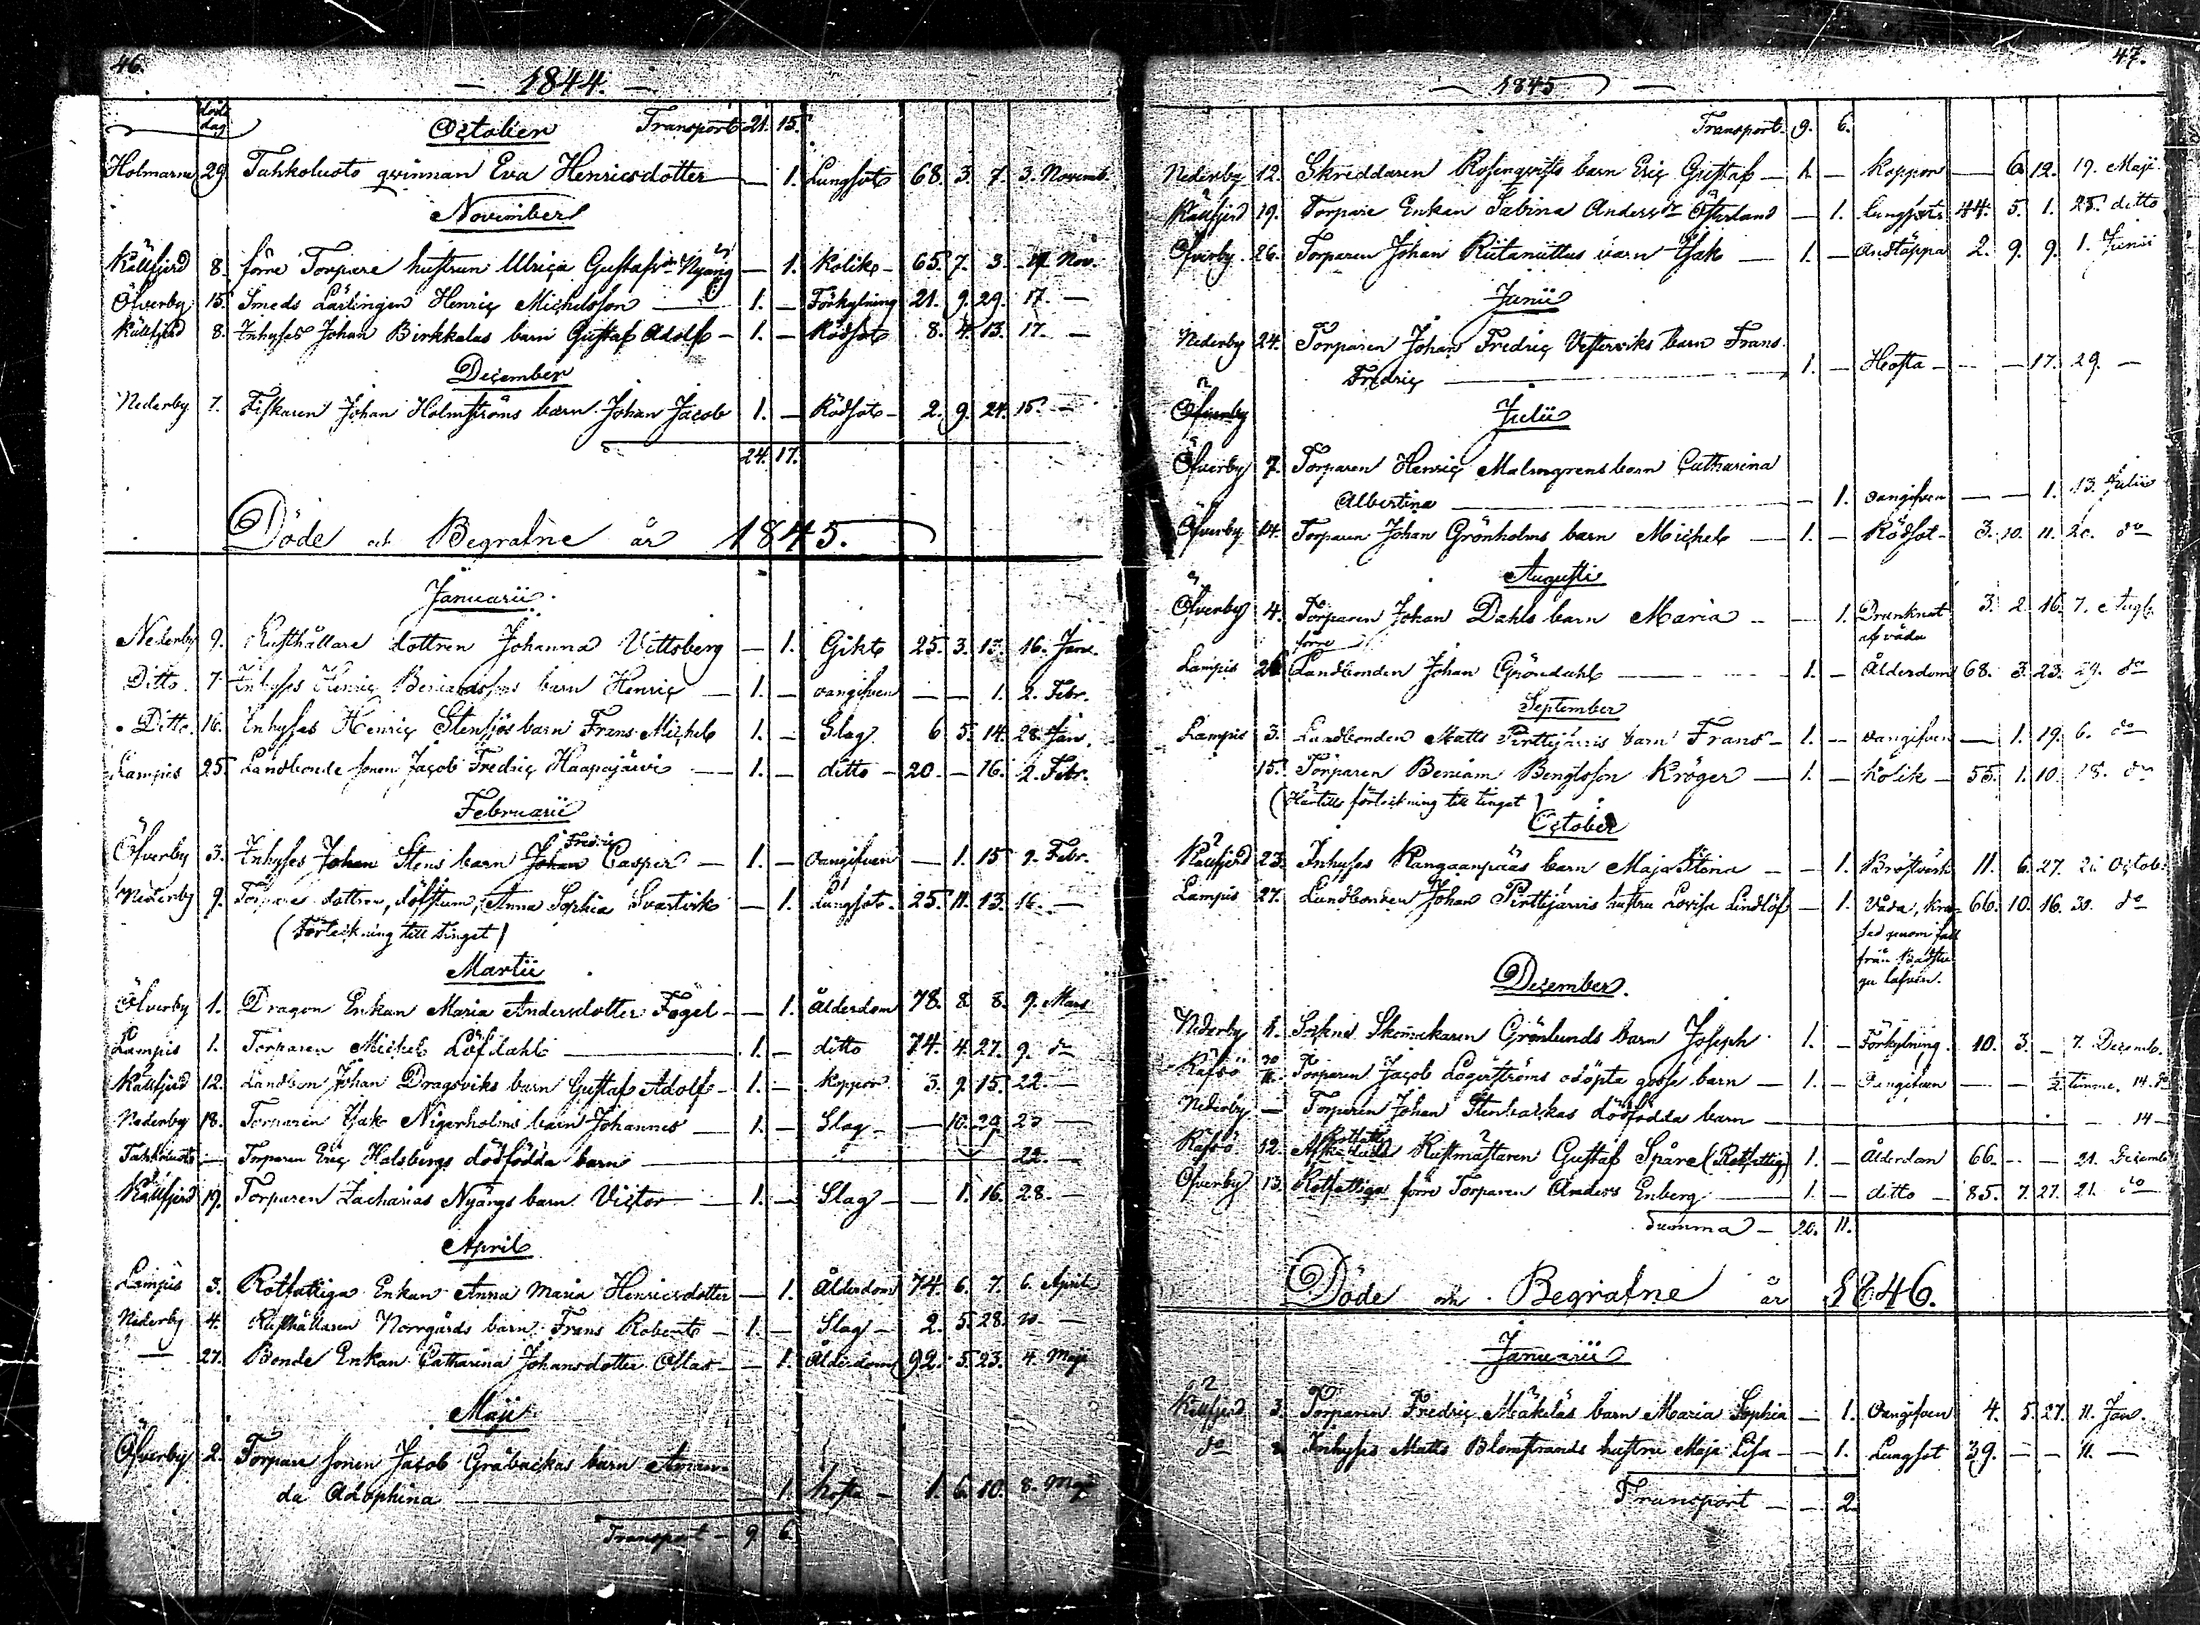 46.
— 1844. —
död dag
October Transport 21. 15.
Holmarne 29. Tahkoluoto qvinnan Eva Henricsdotter — 1. Lungsot 68. 3. 7. 3. Novemb.
November
Källfjerd 8. förre Torpare hustrun Ulrica Gustafsdr Nyäng — 1. Kolik 65. 7. 3. Nov.
Öfverby 15. Smeds Lärlingen Henric Michelsson — 1. — Förkylning 21. 9. 29. 17. —
Källfjerd 8. Inhyses Johan Birkkalas barn Gustaf Adolf — 1. — Rödsot 8. 4. 13. 17. —
December
Nederby 7. Fiskaren Johan Holmströms barn Johan Jacob 1. — Rödsot 2. 9. 24. 15. —
24. 17.
Döde och Begrafne år 1845.
Januarii
Nederby 9. Rusthållare dottren Johanna Vittsberg — 1. Gikt 25. 3. 13. 16. Janr.
Ditto 7. Inhyses Henric barn Henric — 1. — oangifven — — 1. 2. Febr.
Ditto 16. Inhyses Henric Stensjös barn Frans Michel 1. — Slag 6 5. 14. 28. Jan.
Lampis 25. Landbonde sonen Jacob Fredric Haapajärvi — 1. — ditto — 20. — 16. 2. Febr.
Februarii
Öfverby 3. Inhyses Johan Stens barn Johan Fredric Casper — 1. — oangifven — 1. 15 9. Febr.
Nederby 9. Torpare dottren, döfstum, Anna Sophia Svartvik — 1. Lungsot 25. 11. 13. 16. —
(Förteckning till tinget)
Martii
Öfverby 1. Dragon Enkan Maria Andersdotter Fogel — 1. Ålderdom 78. 8. 8. 9. Mars
Lampis 1. Torparen Michel Löfdahl — 1. — ditto 74. 4. 27. 9. do
Källfjerd 12. Landbon Johan Dragsviks barn Gustaf Adolf — 1. — Koppor 3. 9. 15. 22. —
Nederby 18. Torparen Isak Nigerholms barn Johannes — 1. — Slag — 10. 29. 23 —
Tahkoluoto — Torparen Eric Halsbergs dödfödda barn — 22. —
Källfjerd 19. Torparen Zacharias Nyängs barn Victor — 1. — Slag — 1. 16. 28. —
April
Lampis 3. Rotfattiga Enkan Anna Maria Henricsdotter — 1. Ålderdom 74. 6. 7. 6. April
Nederby 4. Rusthållaren Norrgårds barn Frans Robert — 1. — Slag — 2. 5. 28. 10. —
— 27. Bonde Enkan Catharina Johansdotter Ollas — 1. Ålderdom 92. 5. 23. 4. Maji
Maji
Öfverby 2. Torpare sonen Jacob Gråbackas barn Aman-
da Adolphina — 1. Hosta — 1. 6. 10. 8. Maji
Transport — 9 6.
47.
— 1845 —
Transport 9. 6.
Nederby 12. Skräddaren Rosenqvists barn Eric Gustaf — 1. — Koppor — 6 12. 19. Maji
Källfjerd 19. Torpare Enkan Sabina Andersdr Österlund — 1. Lungsot 44. 5. 1. 25. ditto
Öfverby 26. Torparen Johan barn Isak — 1. — Andtäppa 2. 9. 9. 1. Junii
Junii
Nederby 24. Torparen Johan Fredric Vesterviks barn Frans
Fredric — 1. — Hosta — — 17. 29. —
Öfverby
Julii
Öfverby 7. Torparen Henric Malmgrens barn Catharina
Albertina — 1. oangifven — — 1. 13. Julii
Öfverby 14. Torparen Johan Grönholms barn Michel — 1. — Rödsot — 3. 10. 11. 20. do
Augusti
Öfverby 4. Torparen Johan Dahls barn Maria — 1. Drunknat af våda 3. 2. 16. 7. Aug.
Lampis 26 förre Landbonden Johan Gröndahl — 1. — Ålderdom 68. 3. 23. 29. do
September
Lampis 3. Landbonden Matts Pirttijärvis barn Frans — 1. — oangifven — 1. 19. 6. do
15. Torparen Beniam Bengtsson Kröger — 1. — Kolik — 55. 1. 10. 18. do
(Härtills förteckning till tinget)
October
Källfjerd 23. Inhyses Kangaanpääs barn Maja Stina — 1. Bröstvärk 11. 6. 27. 26 Octob.
Lampis 27. Landbonden Johan Pirttijärvis hustru Lovisa Lindlöf — 1. Våda, kros- 66. 10. 16. 30. do
sad genom fall
från Badstu-
gu lafven.
December.
Nederby 1. Sockne Skomakaren Grönlunds barn Joseph 1. — Förkylning. 10. 3. — 7. Decemb.
Räfsö Torparen Jacob Lagerströms odöpta gosse barn — 1. — Oangifven — — ½ timme. 14. do
Nederby — Torparen Johan Stenbackas dödfödda barn — 14 —
Räfsö 12. Rotfattig Rustmästaren Gustaf Spåre (Rotfattig) 1. — Ålderdom 66. — — 21. Decemb.
Öfverby 13. Rotfattiga förre Torparen Anders Enberg — 1. — ditto — 85. 7. 27. 21. do
Summa — 20. 11.
Döde och Begrafne år 1846.
Januarii
Källfjerd 3. Torparen Fredric Mäkeläs barn Maria Sophia — 1. Oangifven 4. 5. 27. 11. Jan
do Inhyses Matts Blomstrands hustru Maja Lisa — 1. Lungsot 39. — — 11. —
Transport — — 2